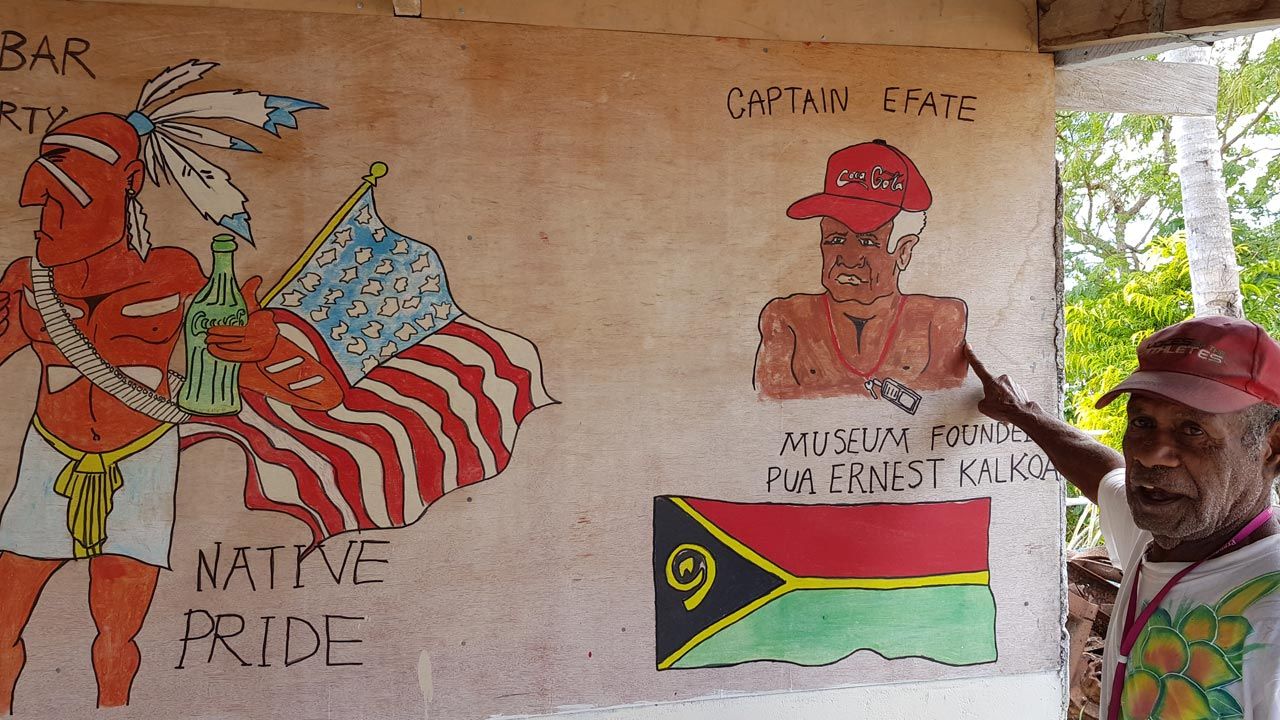 BAR
RTY
CAPTAIN EFATE
Coca Cola
MUSEUM FOUNDE
PUA ERNEST KALKOA
NATIVE
PRIDE
THLETES